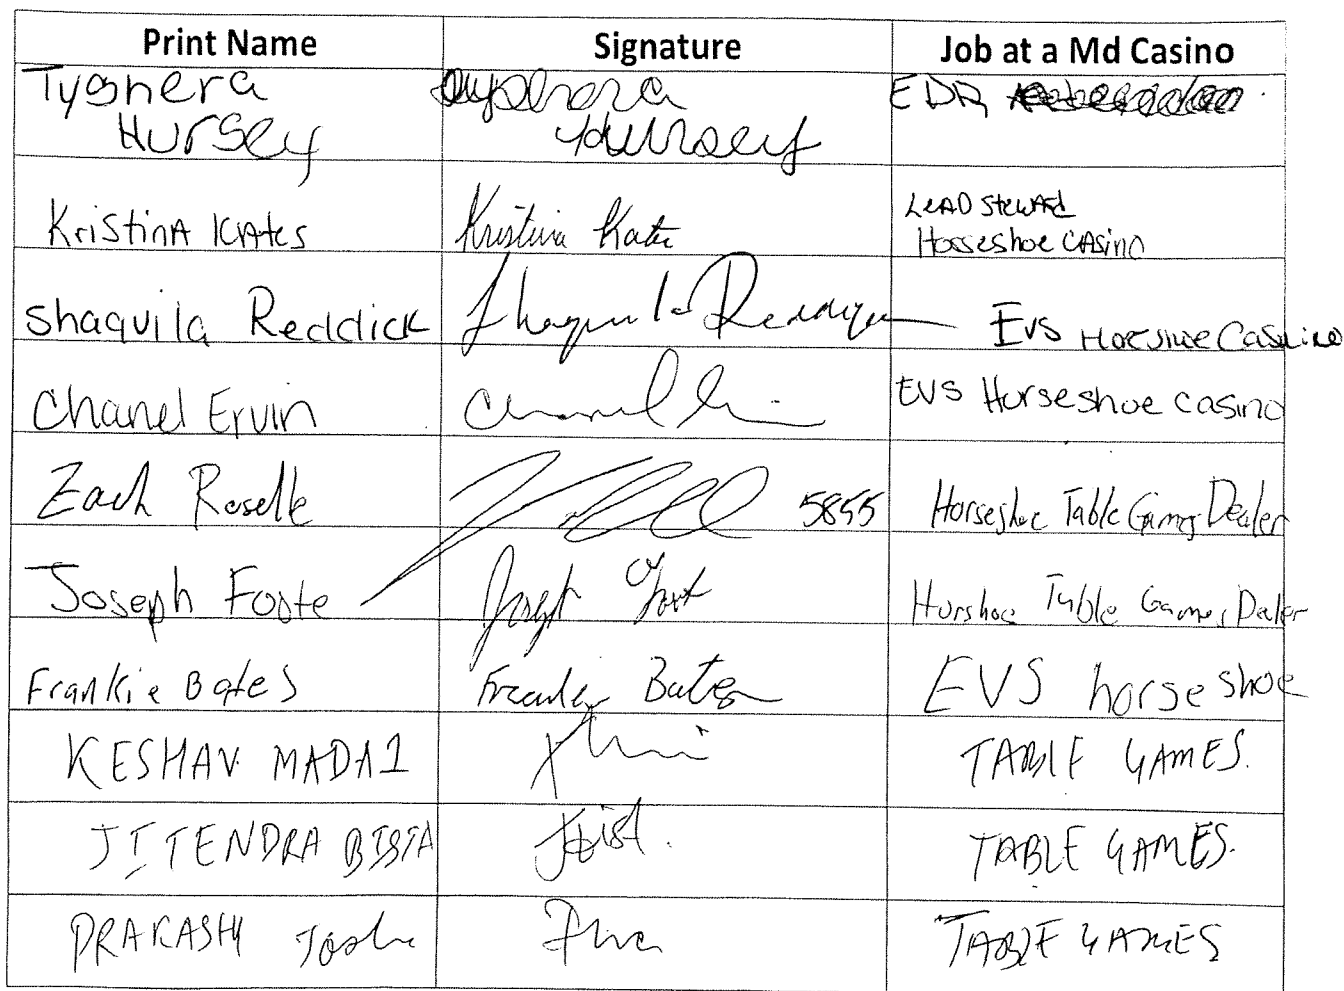 Print Name Signature Job at a Md Casino
Tygnera Hursey EDR
Kristina Kates Kristina Kates Lead Steward Horseshoe Casino
Shaquila Reddick Shaquila Reddick EVS Horeshoe Casino
Chanel Ervin Chanel EVS Horseshoe Casino
Zach Roselle 5855 Horseshoe Table Games Dealer
Joseph Foote Joseph Foote Horshoe Table Games Dealer
Frankie Bates Frankie Bates EVS horse shoe
KESHAV MADAI TABLE GAMES.
JITENDRA BISTA JBist. TABLE GAMES.
PRAKASH Joshi TABLE GAMES